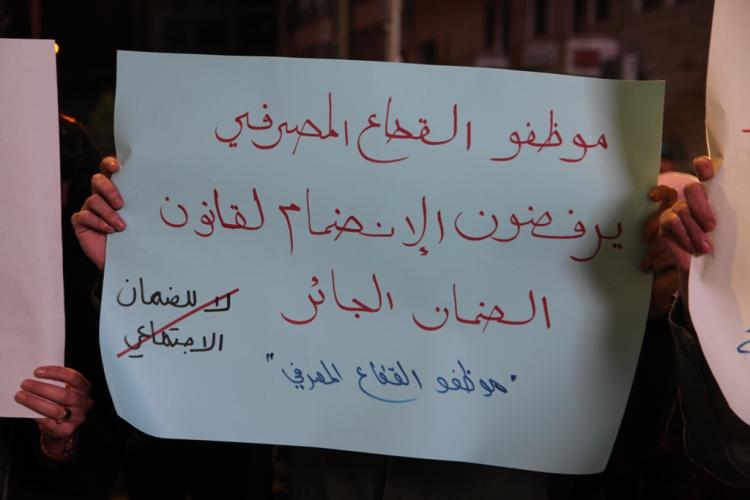 موظفو القطاع المصرفي
يرفضون الإنضمام لقانون
الضمان الجائر
لا للضمان
الاجتماعي
"موظفو القطاع المصرفي"